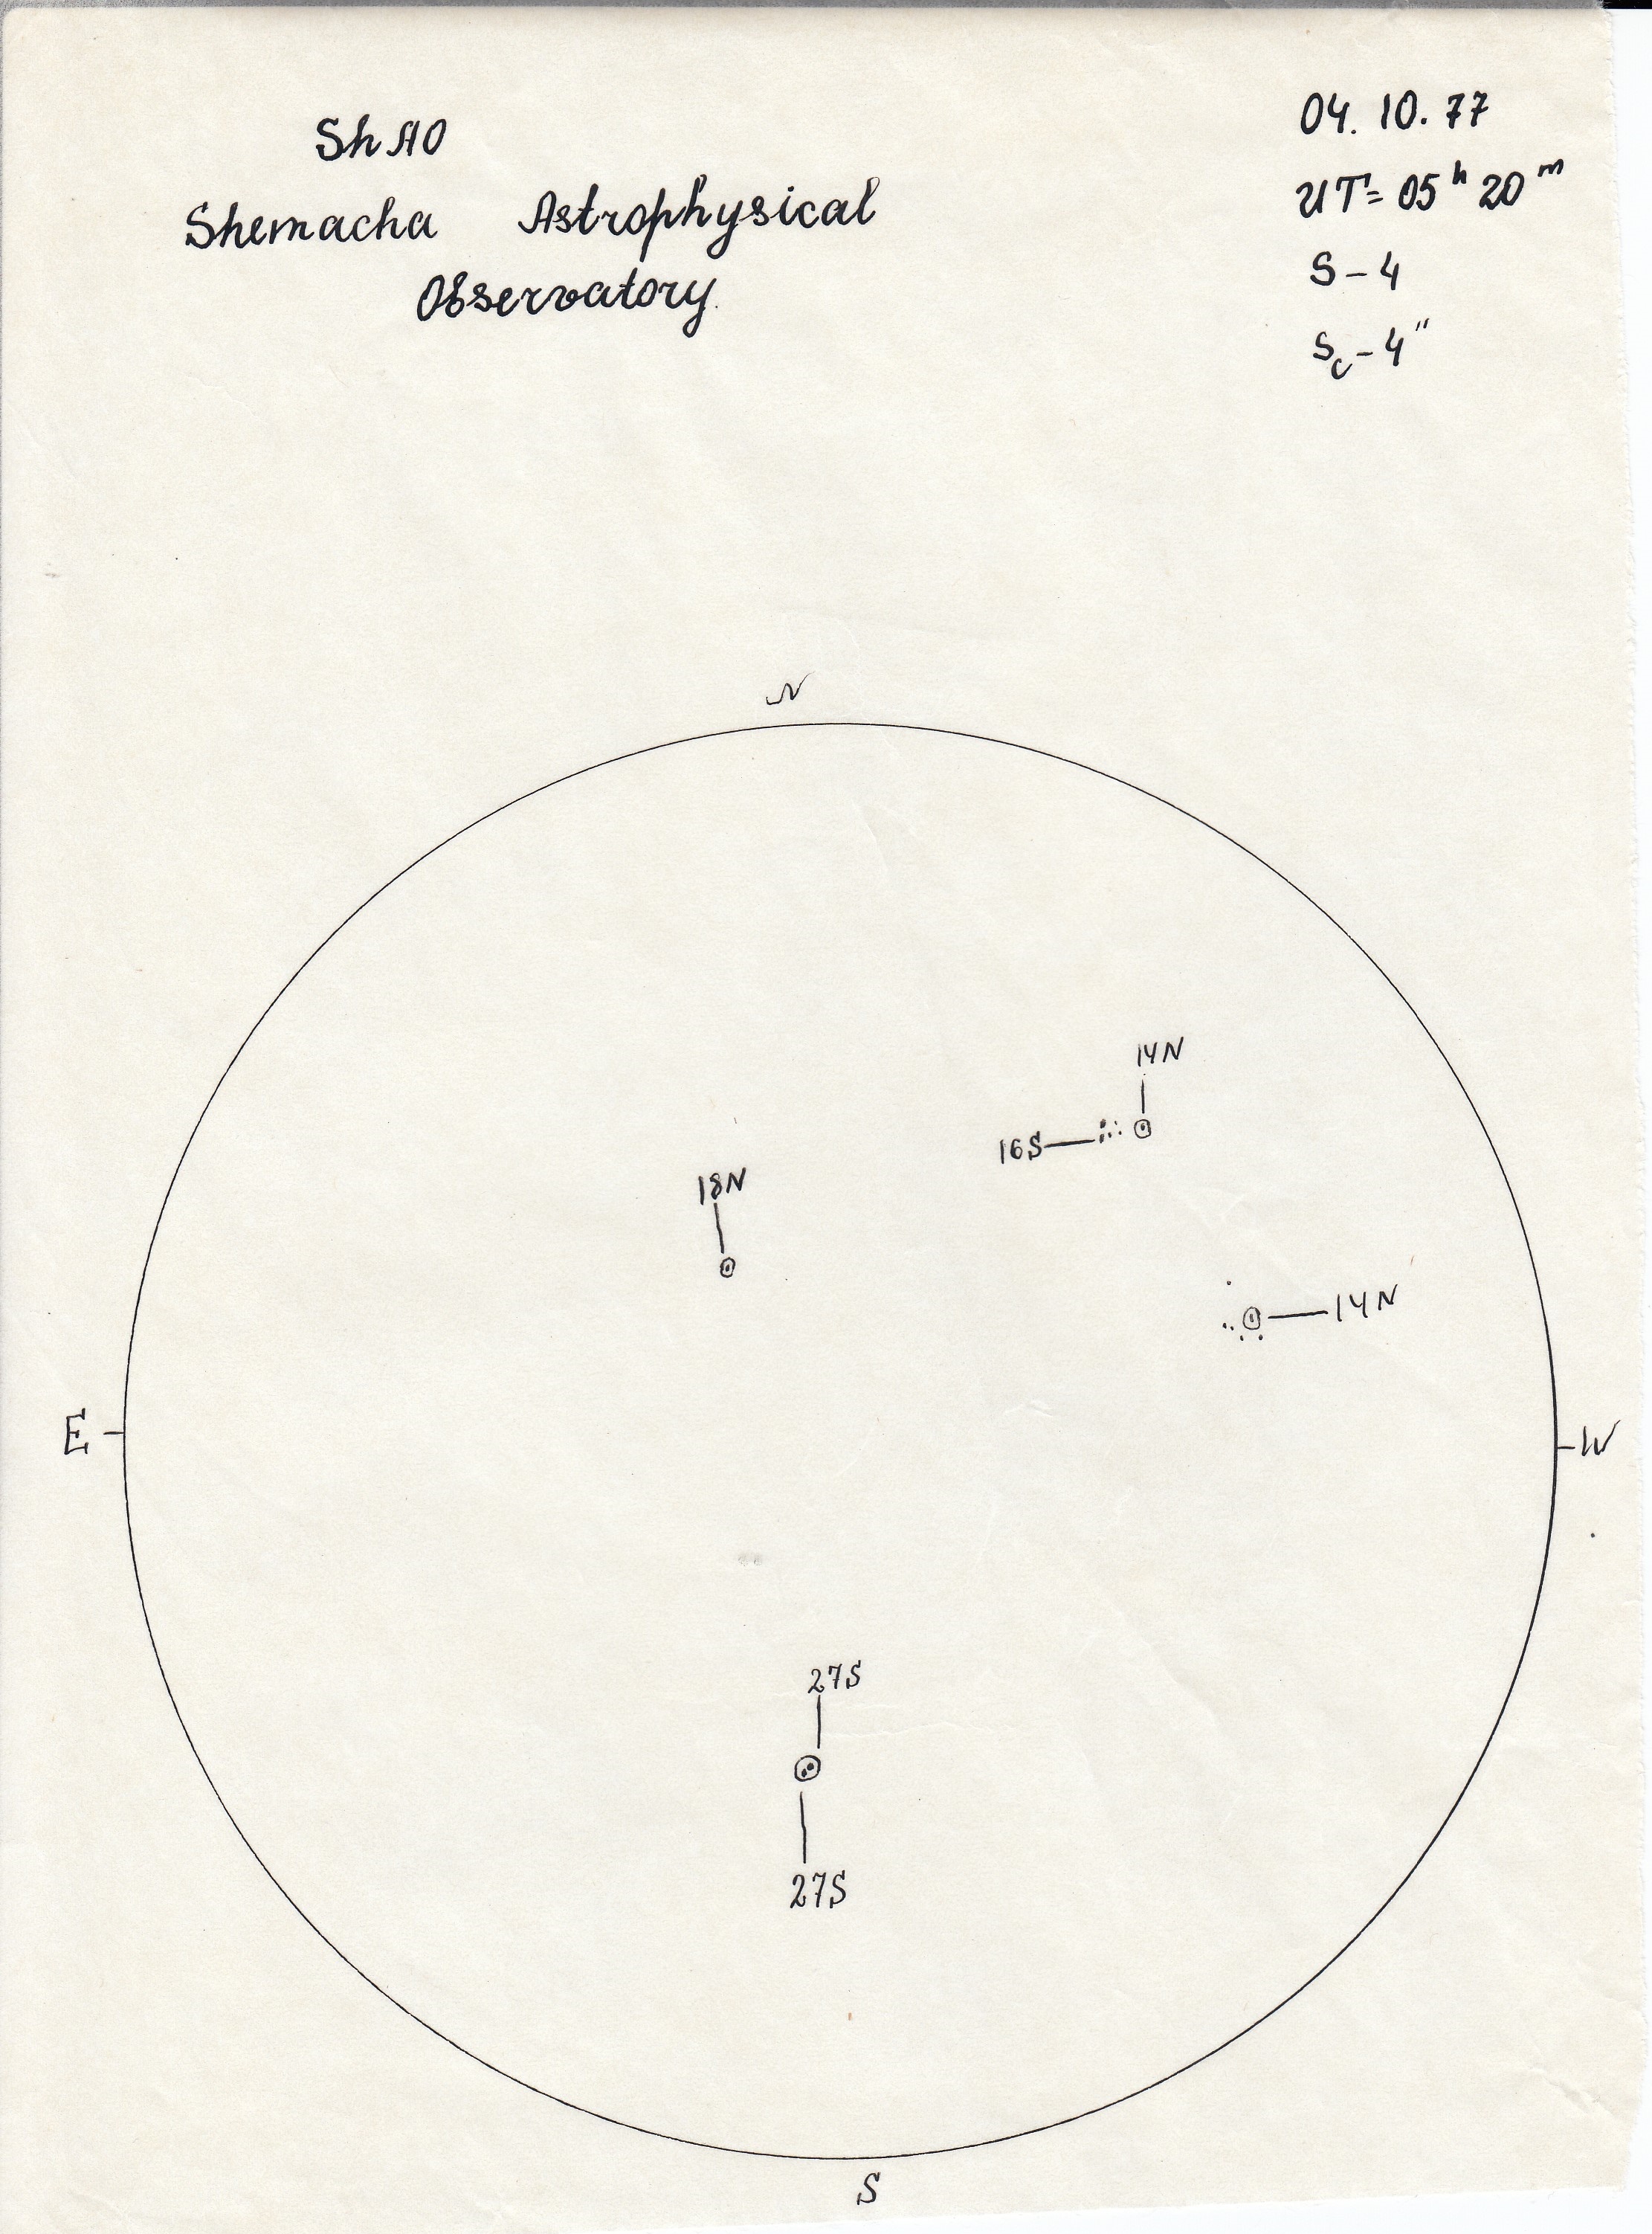 ShAO
Shemacha Astrophysical
Observatory.
04. 10. 77
UT = 05h 20m
S - 4
Sc - 4"
N
14N
16S
18N
14N
E
W
27S
27S
S